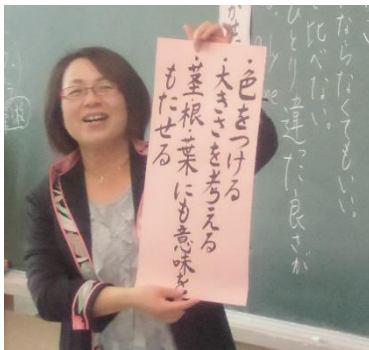 ・色をつける
・大きさを考える
・茎・根・葉にも意味を
もたせる
ならなくてもいい。
と比べない。
ひとり違った良さが